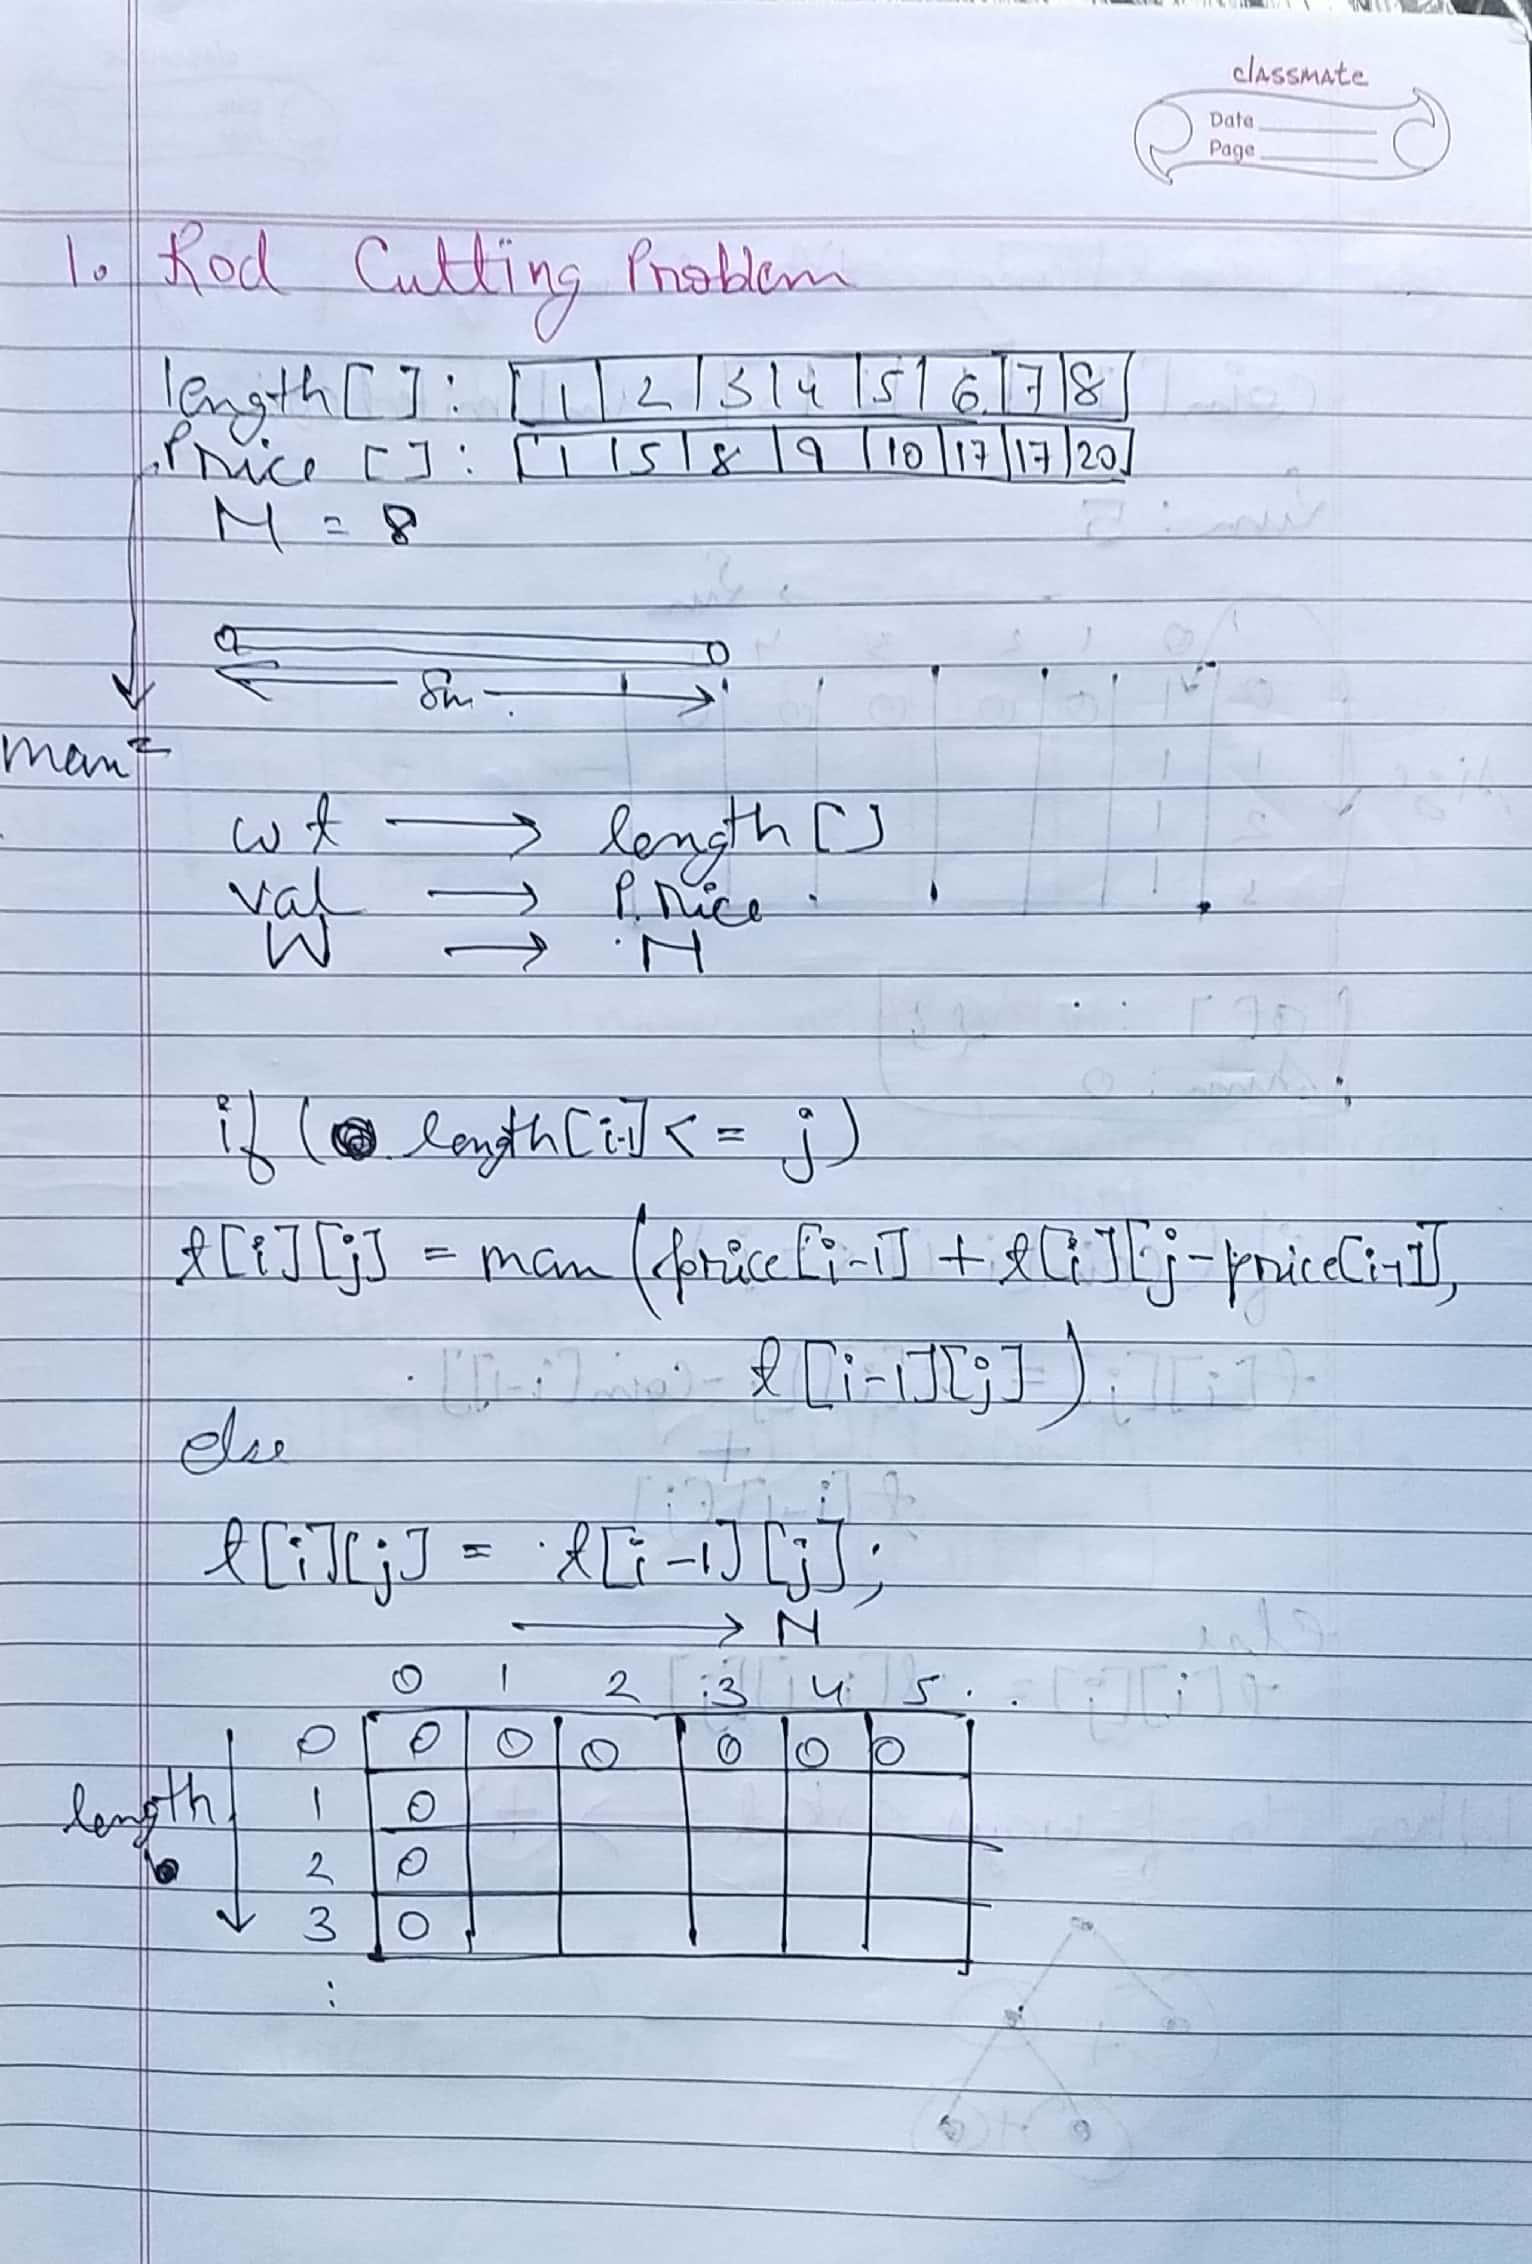 classmate
Date
Page
1. Rod Cutting Problem
length[]: [1|2|3|4|5|6|7|8]
Price []: [1|5|8|9|10|17|17|20]
N = 8
8m
max
wt → length[]
val → Price
W → N
if ( length[i-1] <= j)
t[i][j] = max (price[i-1] + t[i][j-price[i-1]],
t[i-1][j])
else
t[i][j] = t[i-1][j];
→ N
0 1 2 3 4 5 . .
0 0 0 0 0 0 0
length 1 0
2 0
3 0
: